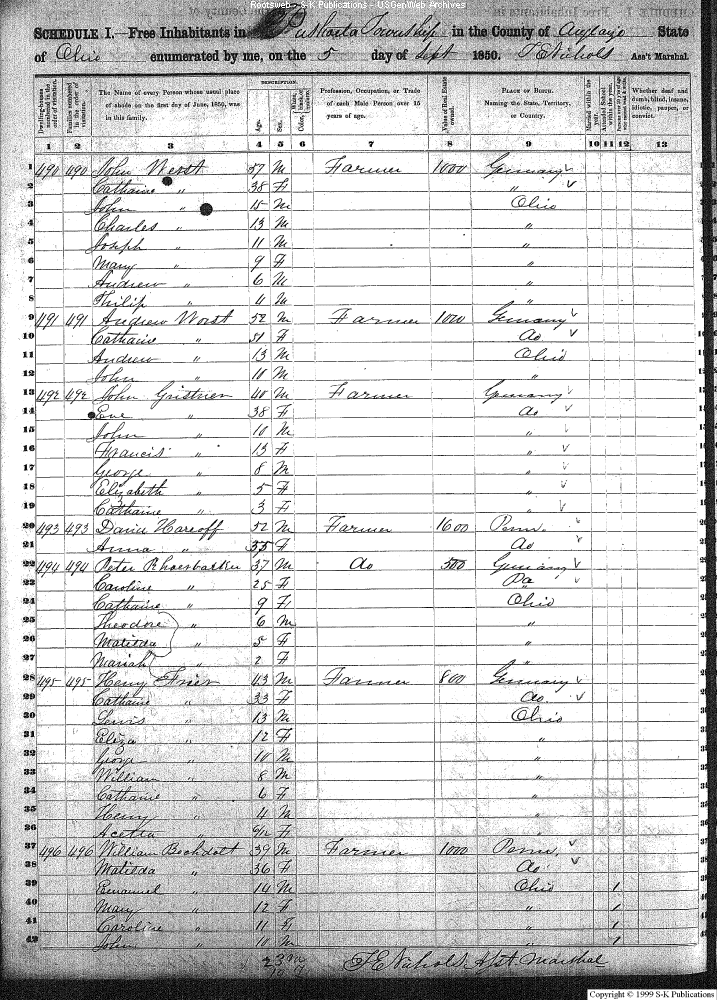 Rootsweb - S-K Publications - USGenWeb Archives
SCHEDULE I.—Free Inhabitants in Pushasta Township in the County of Auglaize State
of Ohio enumerated by me, on the 5 day of Sept 1850. T E Nichols Ass't Marshal.
Dwelling-houses numbered in the order of visitation.
Families numbered in the order of visitation.
The Name of every Person whose usual place of abode on the first day of June, 1850, was in this family.
DESCRIPTION.
Age.
Sex.
White, black, or mulatto.
Color,
Profession, Occupation, or Trade of each Male Person over 15 years of age.
Value of Real Estate owned.
PLACE OF BIRTH. Naming the State, Territory, or Country.
Married within the year.
Attended School within the year.
Whether deaf and dumb, blind, insane, idiotic, pauper, or convict.
1 2 3 4 5 6 7 8 9 10 11 12 13
1 490 490 John Werst 57 M Farmer 1000 Germany
2 Catharine " 38 F "
3 John " 15 M Ohio
4 Charles " 13 M "
5 Joseph " 11 M "
6 Mary " 9 F "
7 Andrew " 6 M "
8 Philip " 4 M "
9 491 491 Andrew Worst 52 M Farmer 1000 Germany
10 Catharine " 51 F do
11 Andrew " 13 M Ohio
12 John " 10 M "
13 492 492 John Gristner 40 M Farmer Germany
14 Eve " 38 F do
15 John " 10 M "
16 Francis " 13 F "
17 George " 8 M "
18 Elizabeth " 5 F "
19 Catharine " 3 F "
20 493 493 David Harcoff 52 M Farmer 1600 Penn.
21 Anna " 35 F do
22 494 494 Peter Rhoerbacker 37 M do 500 Germany
23 Caroline " 25 F Pa
24 Catharine " 9 F Ohio
25 Theodore " 6 M "
26 Matilda " 5 F "
27 Mariah " 2 F "
28 495 495 Henry Frier 43 M Farmer 800 Germany
29 Catharine " 33 F do
30 Lewis " 13 M Ohio
31 Eliza " 12 F "
32 George " 10 M "
33 William " 8 M "
34 Catharine " 6 F "
35 Henry " 4 M "
36 Acetta " 9/12 F "
37 496 496 William Bechdolt 39 M Farmer 1000 Penn.
38 Matilda " 36 F do
39 Emanuel " 14 M Ohio 1
40 Mary " 12 F " 1
41 Caroline " 11 F " 1
42 John " 10 M " 1
23 M
T E Nichols Asst Marshal
Copyright © 1999 S-K Publications